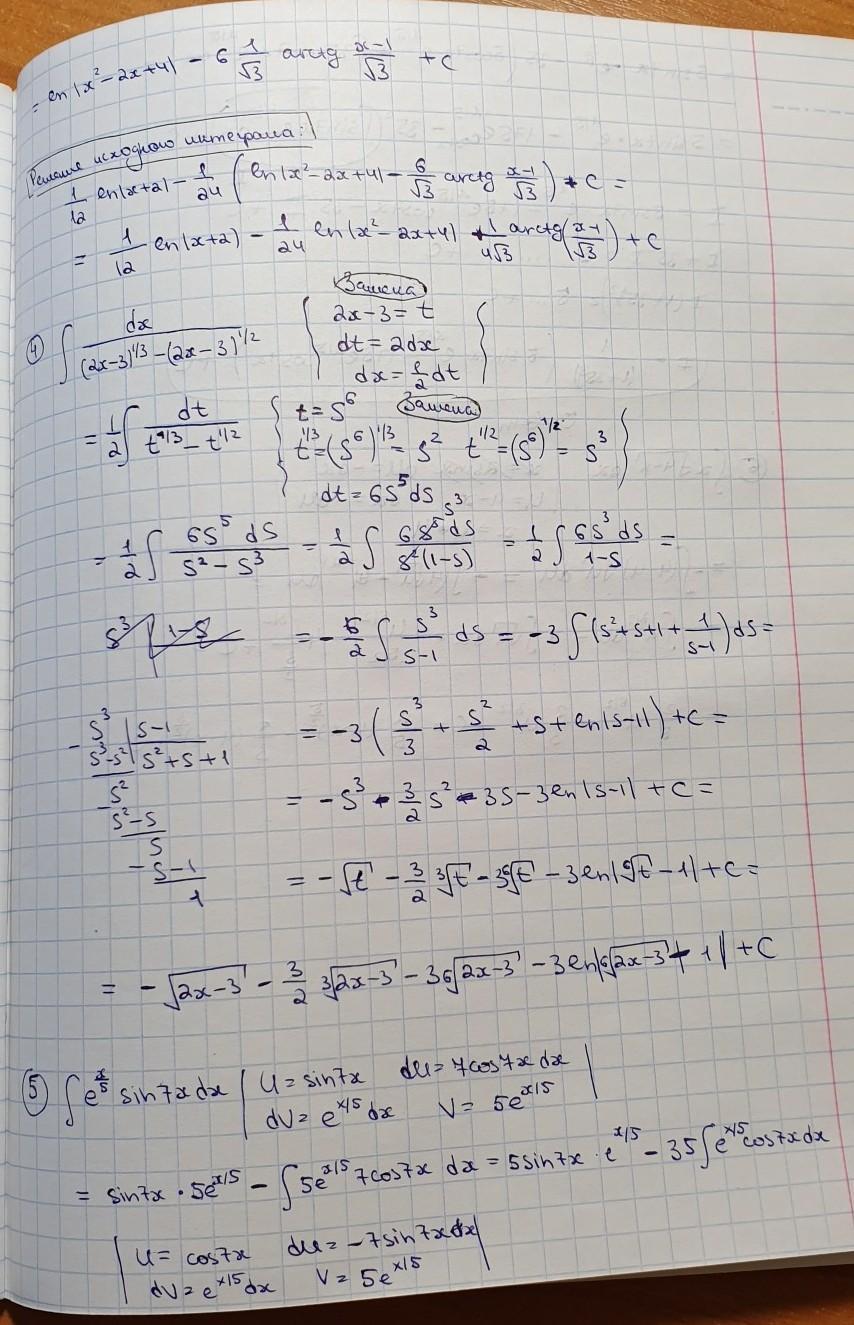 = ln|x²-2x+4| - 6 1/√3 arctg (x-1)/√3 + C
Решение исходного интеграла:
1/12 ln|x+2| - 1/24 (ln|x²-2x+4| - 6/√3 arctg (x-1)/√3) + C =
= 1/12 ln|x+2) - 1/24 ln|x²-2x+4| + 1/4√3 arctg((x-1)/√3) + C
Замена
④ ∫ dx/((2x-3)^1/3 - (2x-3)^1/2) { 2x-3 = t
dt = 2dx
dx = 1/2 dt }
= 1/2 ∫ dt/(t^1/3 - t^1/2) { t = s⁶ Замена
t^1/3 = (s⁶)^1/3 = s² t^1/2 = (s⁶)^1/2 = s³
dt = 6s⁵ds }
= 1/2 ∫ 6s⁵ ds/(s² - s³) = 1/2 ∫ 6s⁵ ds/(s²(1-s)) s³ = 1/2 ∫ 6s³ ds/(1-s) =
s³ | 1-s = - 6/2 ∫ s³/(s-1) ds = -3 ∫ (s²+s+1+ 1/(s-1)) ds =
- s³ | s-1 = -3 ( s³/3 + s²/2 + s + ln|s-1| ) + C =
s³-s² | s²+s+1
- s² = -s³ - 3/2 s² - 3s - 3ln|s-1| + C =
s²-s
s
- s-1 = -√t - 3/2 ³√t - 3⁶√t - 3ln|⁶√t - 1| + C =
1
= -√(2x-3) - 3/2 ³√(2x-3) - 3 ⁶√(2x-3) - 3ln|⁶√(2x-3) - 1| + C
⑤ ∫ e^(x/5) sin7x dx | u = sin7x du = 7cos7x dx |
dv = e^(x/5) dx v = 5e^(x/5)
= sin7x · 5e^(x/5) - ∫ 5e^(x/5) 7cos7x dx = 5sin7x · e^(x/5) - 35 ∫ e^(x/5) cos7x dx
| u = cos7x du = -7sin7x dx |
dv = e^(x/5) dx v = 5e^(x/5)